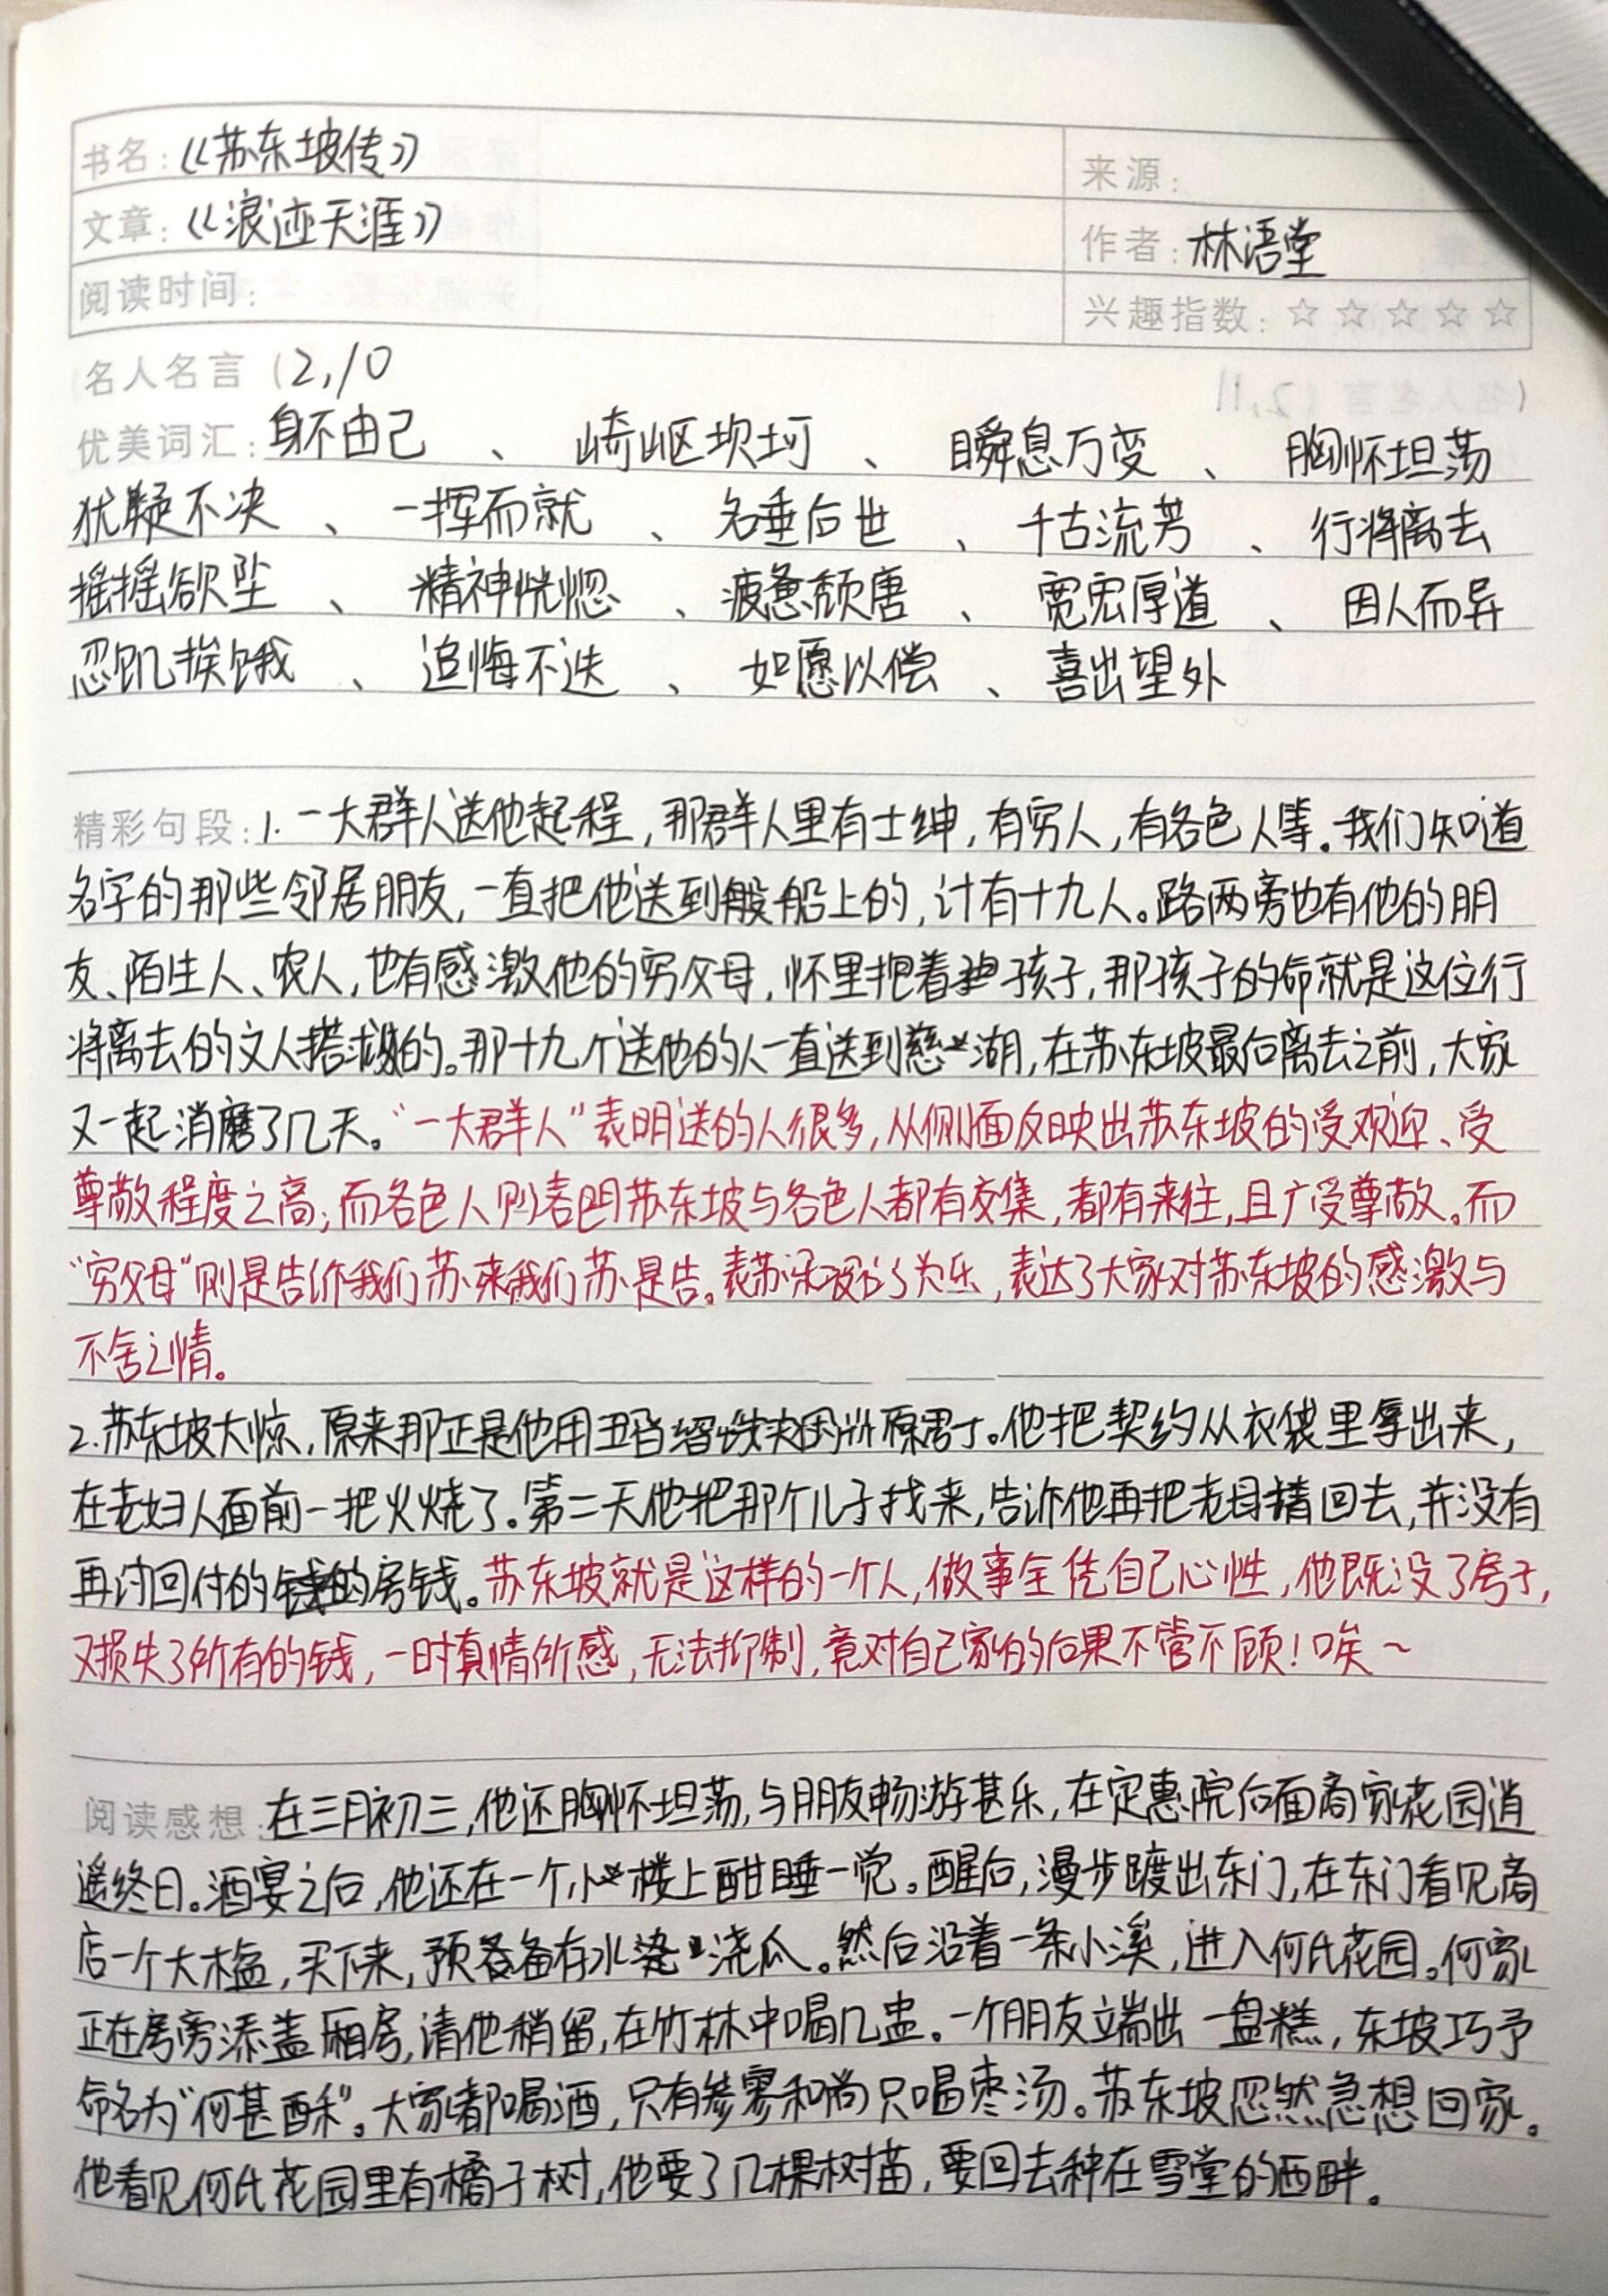 书名：《苏东坡传》 来源：
文章：《浪迹天涯》 作者：林语堂
阅读时间： 兴趣指数：☆☆☆☆☆
名人名言（2,10
优美词汇：身不由己、崎岖坎坷、瞬息万变、胸怀坦荡
犹疑不决、一挥而就、名垂后世、千古流芳、行将离去
摇摇欲坠、精神恍惚、疲惫颓唐、宽宏厚道、因人而异
忍饥挨饿、追悔不迭、如愿以偿、喜出望外
精彩句段：1.一大群人送他起程，那群人里有士绅，有穷人，有各色人等。我们知道
名字的那些邻居朋友，一直把他送到船上的，计有十九人。路两旁也有他的朋
友、陌生人、农人，也有感激他的穷父母，怀里抱着孩子，那孩子的命就是这位行
将离去的文人搭救的。那十九个送他的人一直送到慈湖，在苏东坡最后离去之前，大家
又一起消磨了几天。“一大群人”表明送的人很多，从侧面反映出苏东坡的受欢迎、受
尊敬程度之高；而各色人则表明苏东坡与各色人都有交集，都有来往，且广受尊敬。而
“穷父母”则是告诉我们苏来我们苏是告。表苏东坡的了为乐，表达了大家对苏东坡的感激与
不舍之情。
2.苏东坡大惊，原来那正是他用五百缗
他把契约从衣袋里拿出来，
在老妇人面前一把火烧了。第二天他把那个儿子找来，告诉他再把老母请回去，并没有
再讨回付的房钱。苏东坡就是这样的一个人，做事全凭自己心性，他既没了房子，
又损失了所有的钱，一时真情所感，无法抑制，竟对自己家的后果不管不顾！唉～
阅读感想：在三月初三，他还胸怀坦荡，与朋友畅游甚乐，在定惠院后面商家花园逍
遥终日。酒宴之后，他还在一个小楼上酣睡一觉。醒后，漫步踱出东门，在东门看见商
店一个大木盆，买下来，预备存水浇瓜。然后沿着一条小溪，进入何氏花园。何家
正在房旁添盖厢房，请他稍留，在竹林中喝几盅。一个朋友端出一盘糕，东坡巧予
命名为“何甚酥”。大家都喝酒，只有参寥和尚只喝枣汤。苏东坡忽然急想回家。
他看见何氏花园里有橘子树，他要了几棵树苗，要回去种在雪堂的西畔。